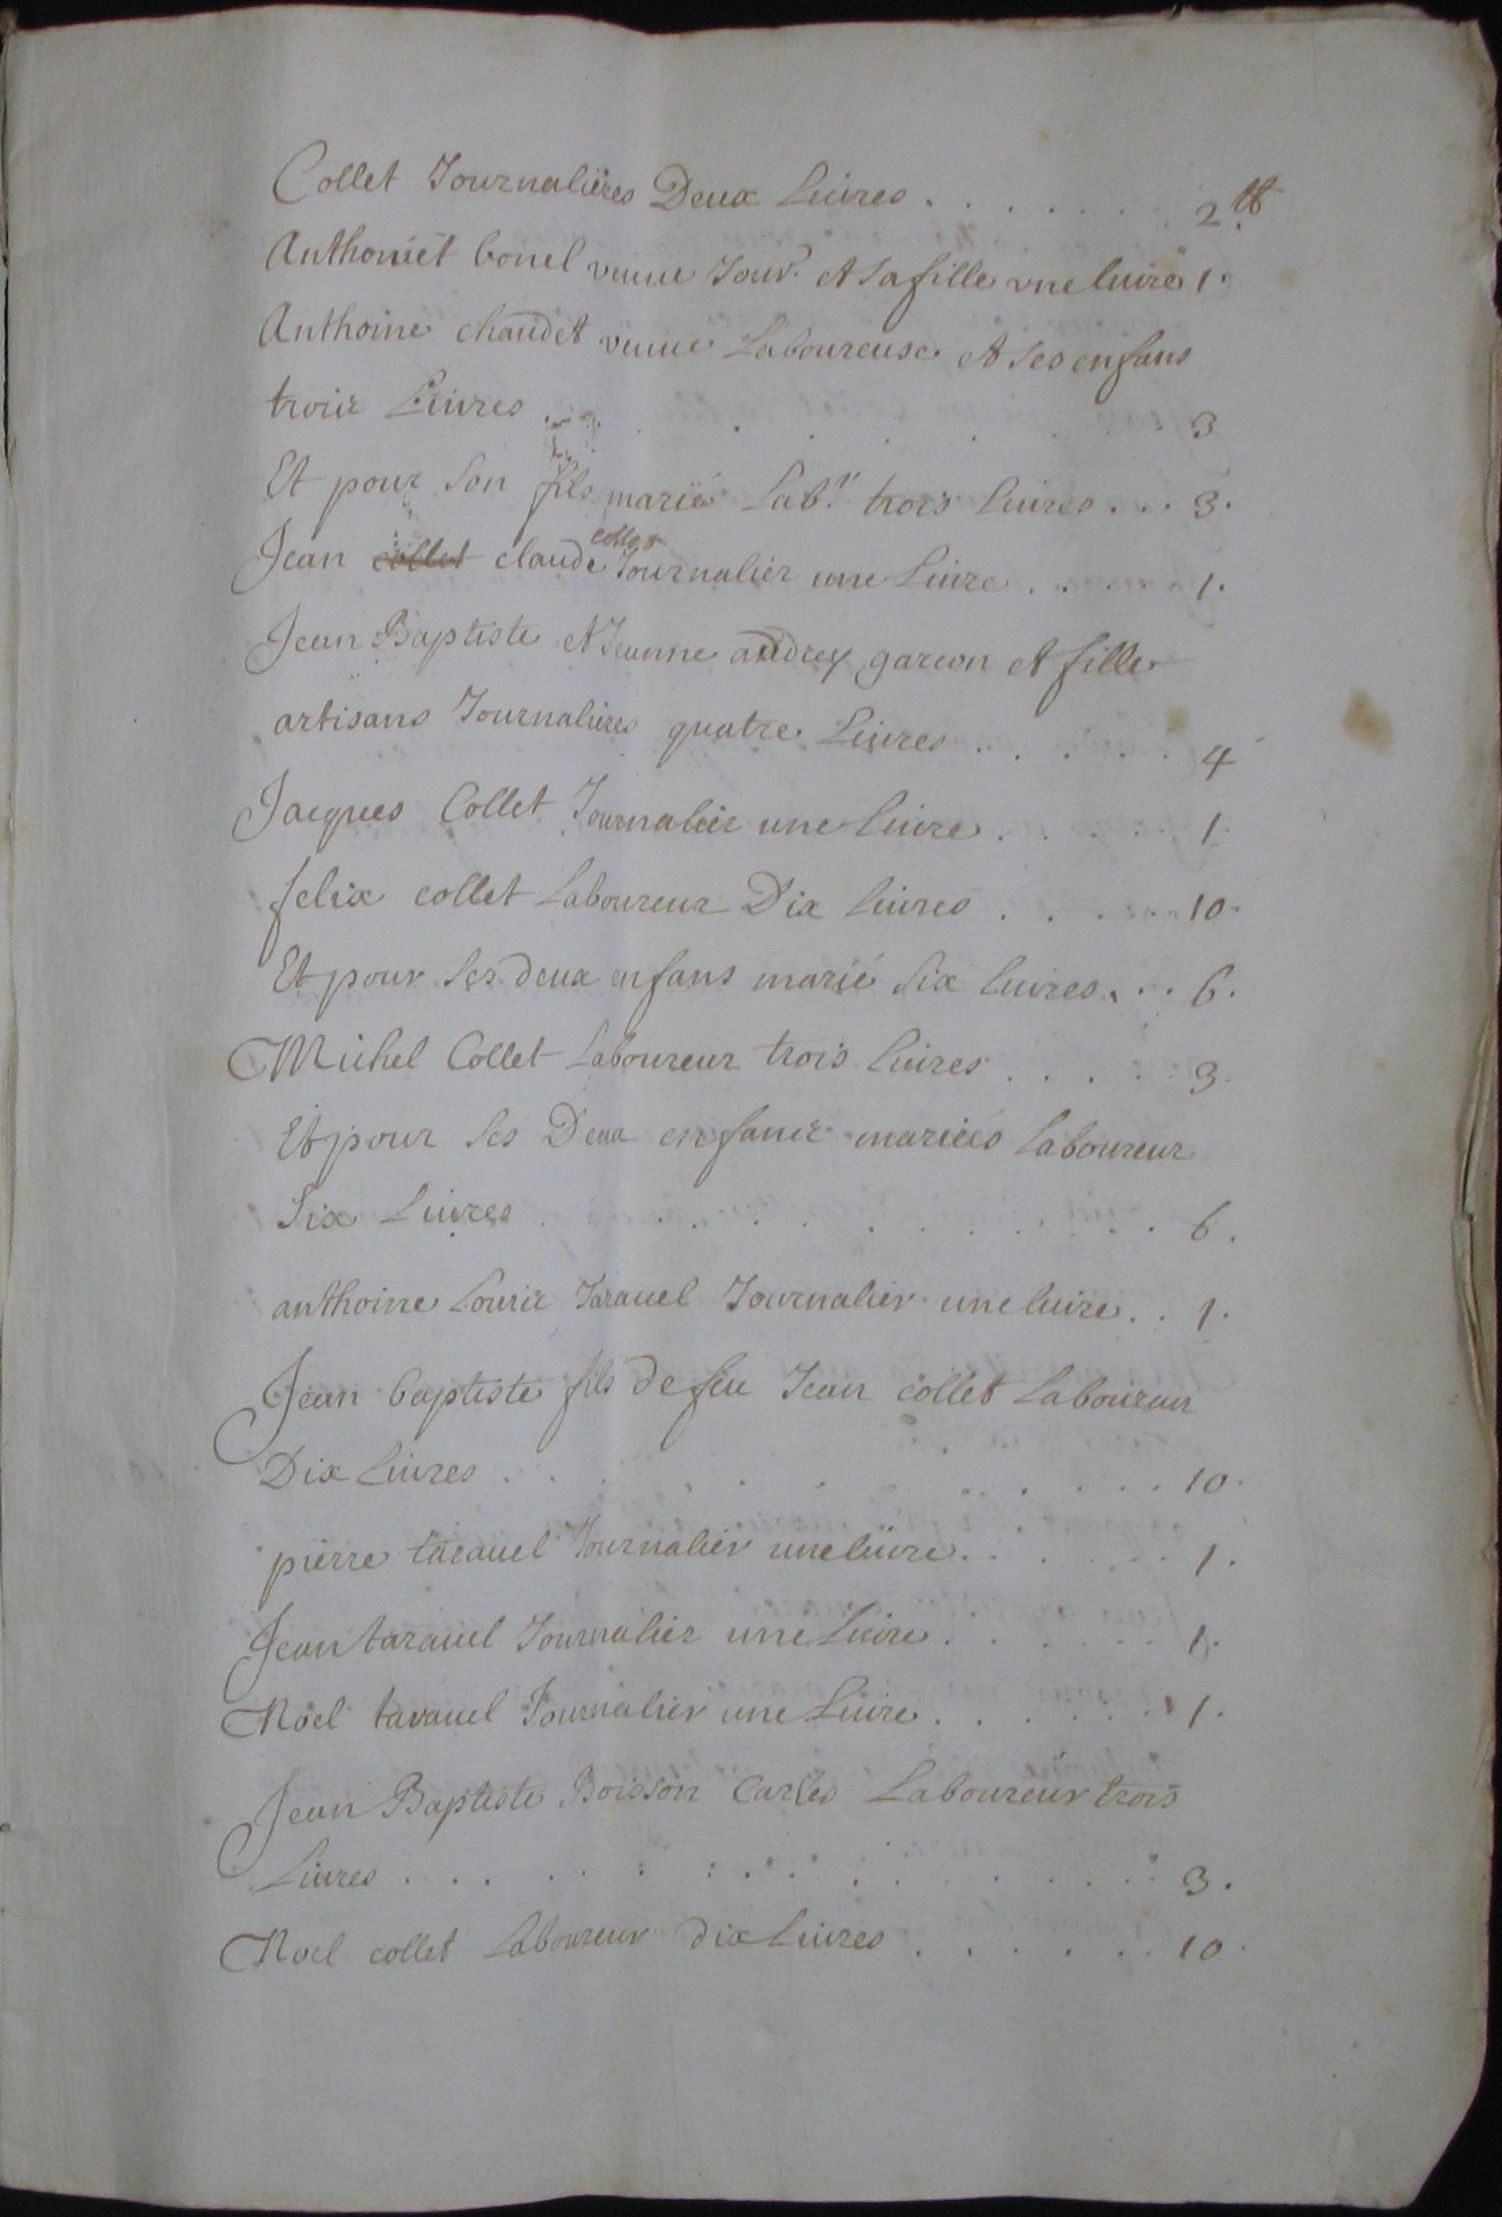 Collet Journalieres Deux Liures . . . . . . 2 tt
Anthoniet bonel veuue Jour. et sa fille vne liure 1.
Anthoine chaudet veuue Laboureuse et ses enfans
trois Liures . . . . . . . 3
Et pour son fils marié Lab.r trois liures . . . 3.
Jean collet claude collet Journalier une Liure . . . . 1.
Jean Baptiste et Jeanne audrey garcon et fille
artisans Journalieres quatre Liures . . . . . 4
Jacques Collet Journalier une liure . . . . . 1
felix collet Laboureur Dix liures . . . . 10.
Et pour ses deux enfans marié six liures . . . 6.
Michel Collet Laboureur trois liures . . . . . 3.
Et pour ses Deux enfans mariés Laboureur
Six Liures . . . . . . . . . . 6.
anthoine Louis Tarauel Journalier une liure . . 1.
Jean baptiste fils de feu Jean collet Laboureur
Dix Liures . . . . . . . . . . 10.
pierre tarauel Journalier une liure . . . . . . 1.
Jean tarauel Journalier une Liure . . . . . . 1.
Noël tarauel Journalier une Liure . . . . . . 1.
Jean Baptiste Boisson Carles Laboureur trois
Liures . . . . . . . . . . . . . 3.
Noel collet Laboureur dix liures . . . . . . 10.